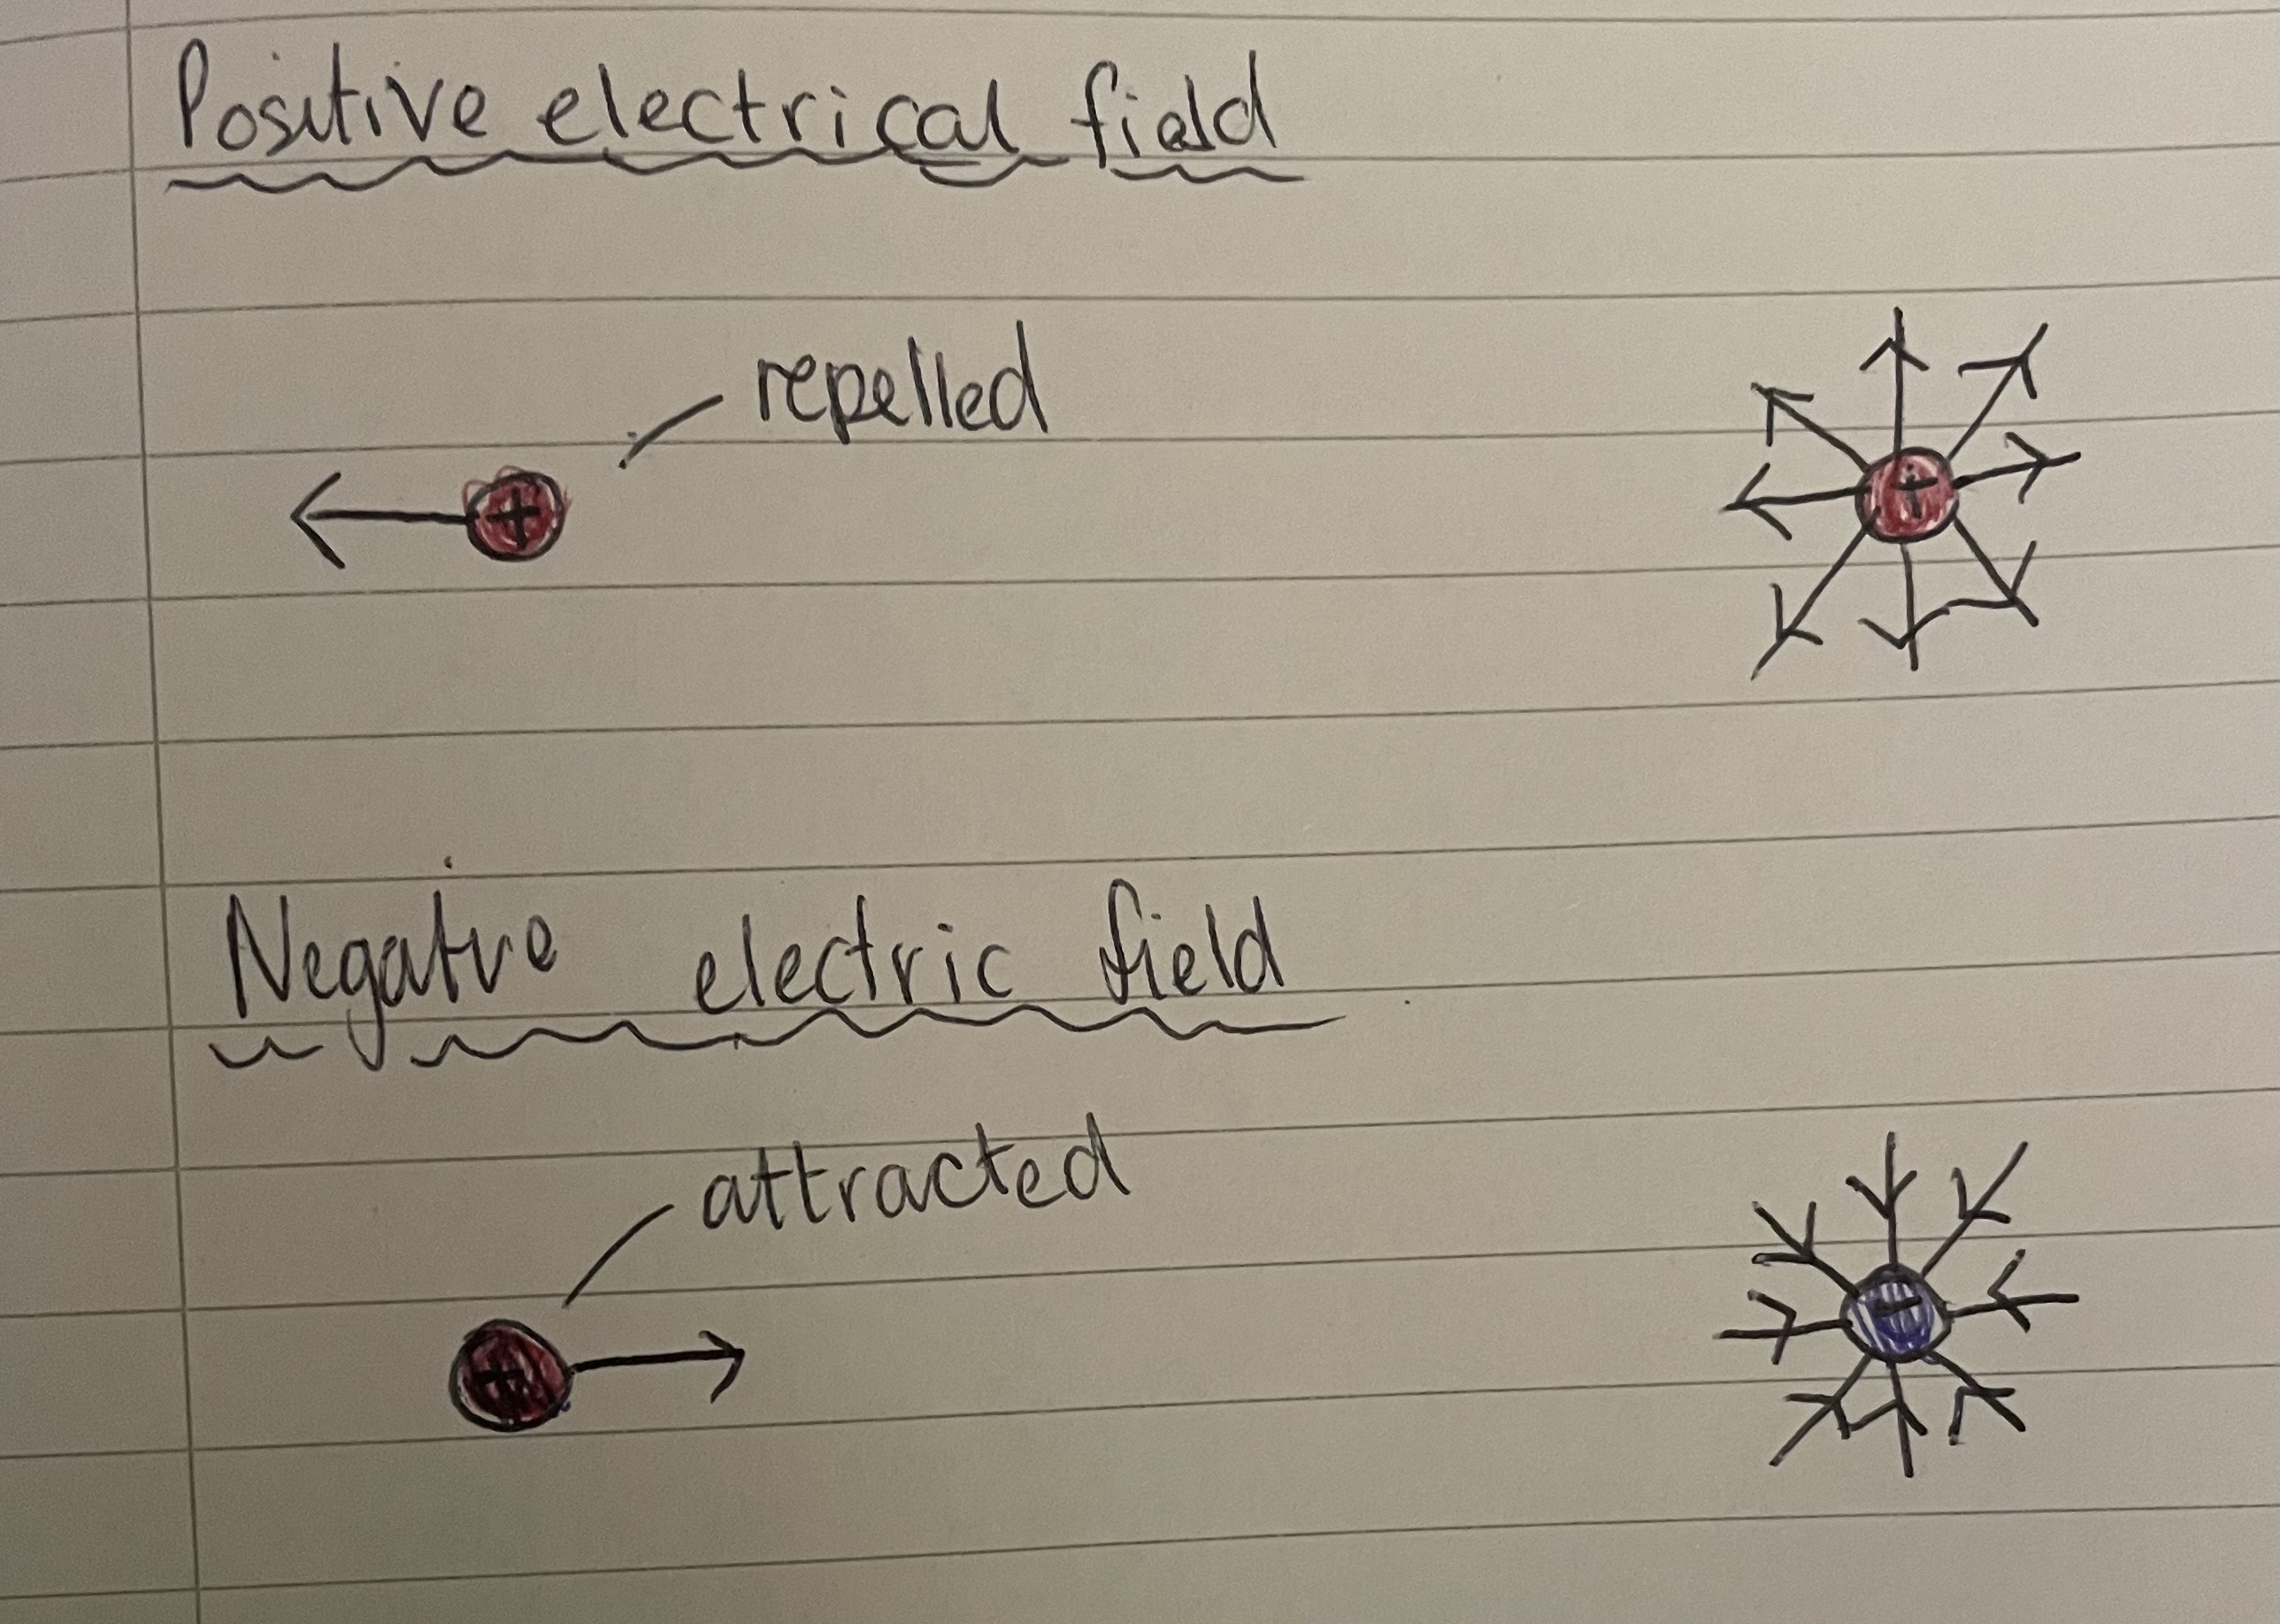 Positive electrical field
repelled
+
+
Negative electric field
attracted
+
-